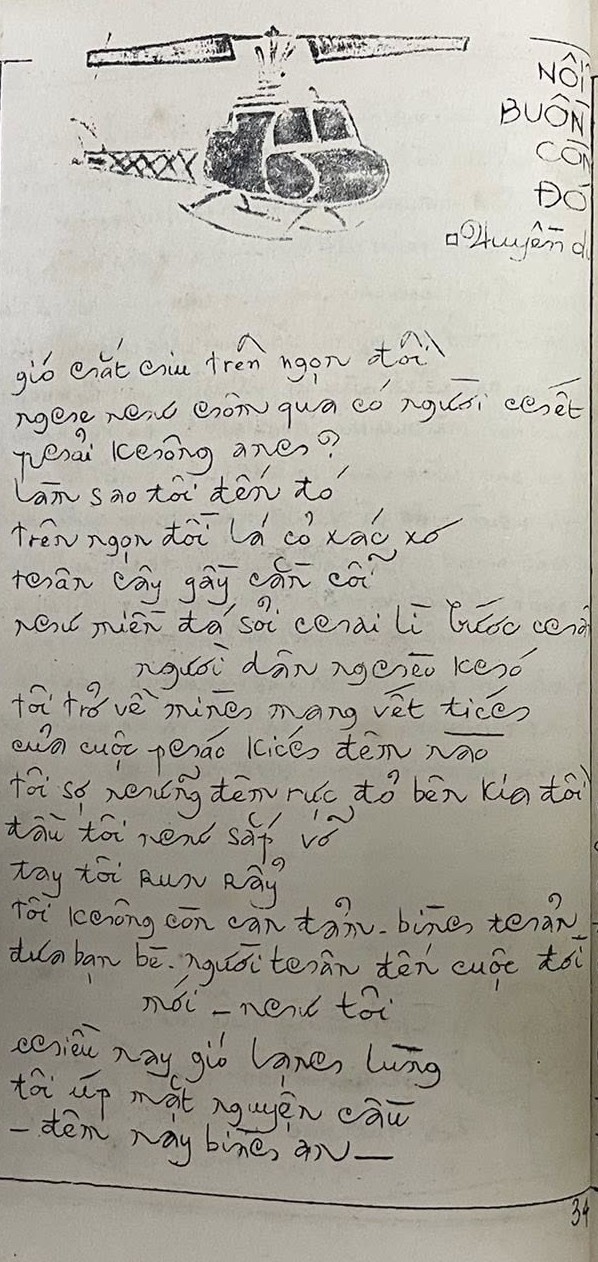 NỖI
BUỒN
CÒN
ĐÓ
Huyền
gió chắt chiu trên ngọn đồi
nghe như hôm qua có người chết
phải không anh?
làm sao tôi đến đó
trên ngọn đồi lá cỏ xác xơ
thân cây gầy cằn cỗi
như miền đá sỏi chai lì bước chân
người dân nghèo khó
tôi trở về mình mang vết tích
của cuộc pháo kích đêm nào
tôi sợ những đêm rực đỏ bên kia đồi
đầu tôi như sắp vỡ
tay tôi RUN RẨY
tôi không còn can đảm - bình thản
đưa bạn bè - người thân đến cuộc đời
mới - như tôi
chiều nay gió lạnh lùng
tôi úp mặt nguyện cầu
- đêm này bình an -
34